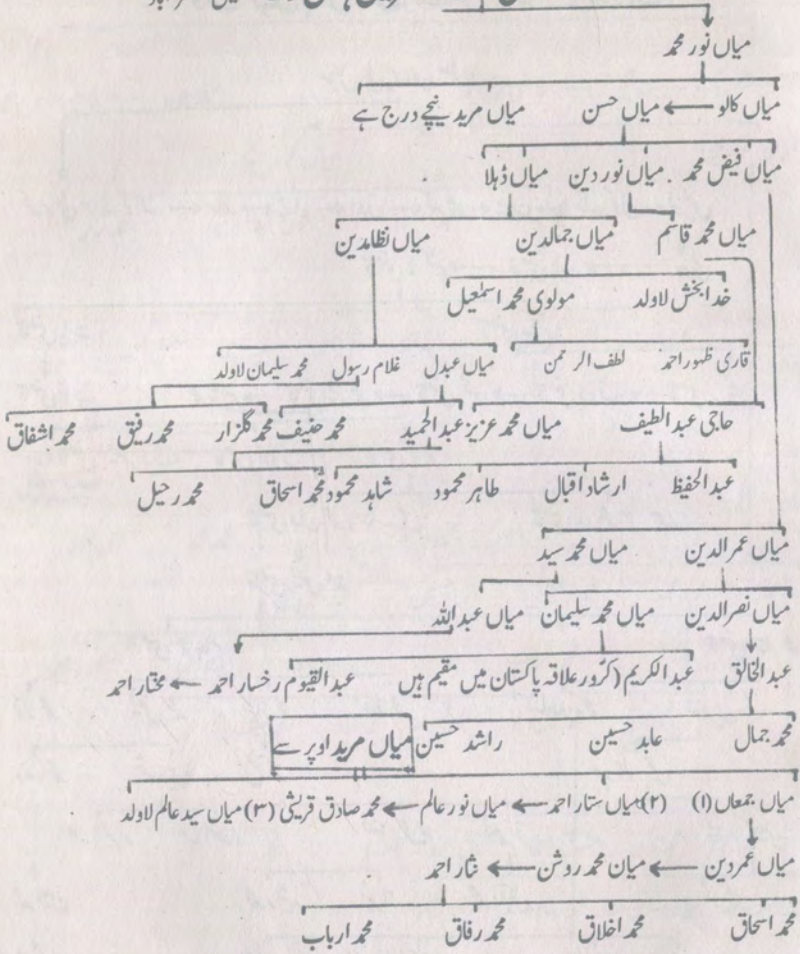 میاں نور محمد
میاں کالو ← میاں حسن میاں مرید نیچے درج ہے
میاں فیض محمد . میاں نور دین میاں ڈہلا
میاں محمد قاسم میاں جمالدین میاں نظامدین
خدا بخش لاولد مولوی محمد اسمٰعیل
قاری ظہور احمد لطف الرحمن میاں عبدل غلام رسول محمد سلیمان لاولد
حاجی عبد الطیف میاں محمد عزیز عبد الحمید محمد حنیف محمد گلزار محمد رفیق محمد اشفاق
عبد الحفیظ ارشاد اقبال طاہر محمود شاہد محمود محمد اسحاق محمد رحیل
میاں عمر الدین میاں محمد سید
میاں نصر الدین میاں محمد سلیمان میاں عبد اللہ
عبد الخالق عبد الکریم (کروڑ علاقہ پاکستان میں مقیم ہیں عبد القیوم رخسار احمد ← مختار احمد
محمد جمال عابد حسین راشد حسین میاں مرید اوپر سے
میاں جمعاں (۱) (۲) میاں ستار احمد ← میاں نور عالم ← محمد صادق قریشی (۳) میاں سید عالم لاولد
میاں عمر دین ← میان محمد روشن ← نثار احمد
محمد اسحاق محمد اخلاق محمد رفاق محمد ارباب